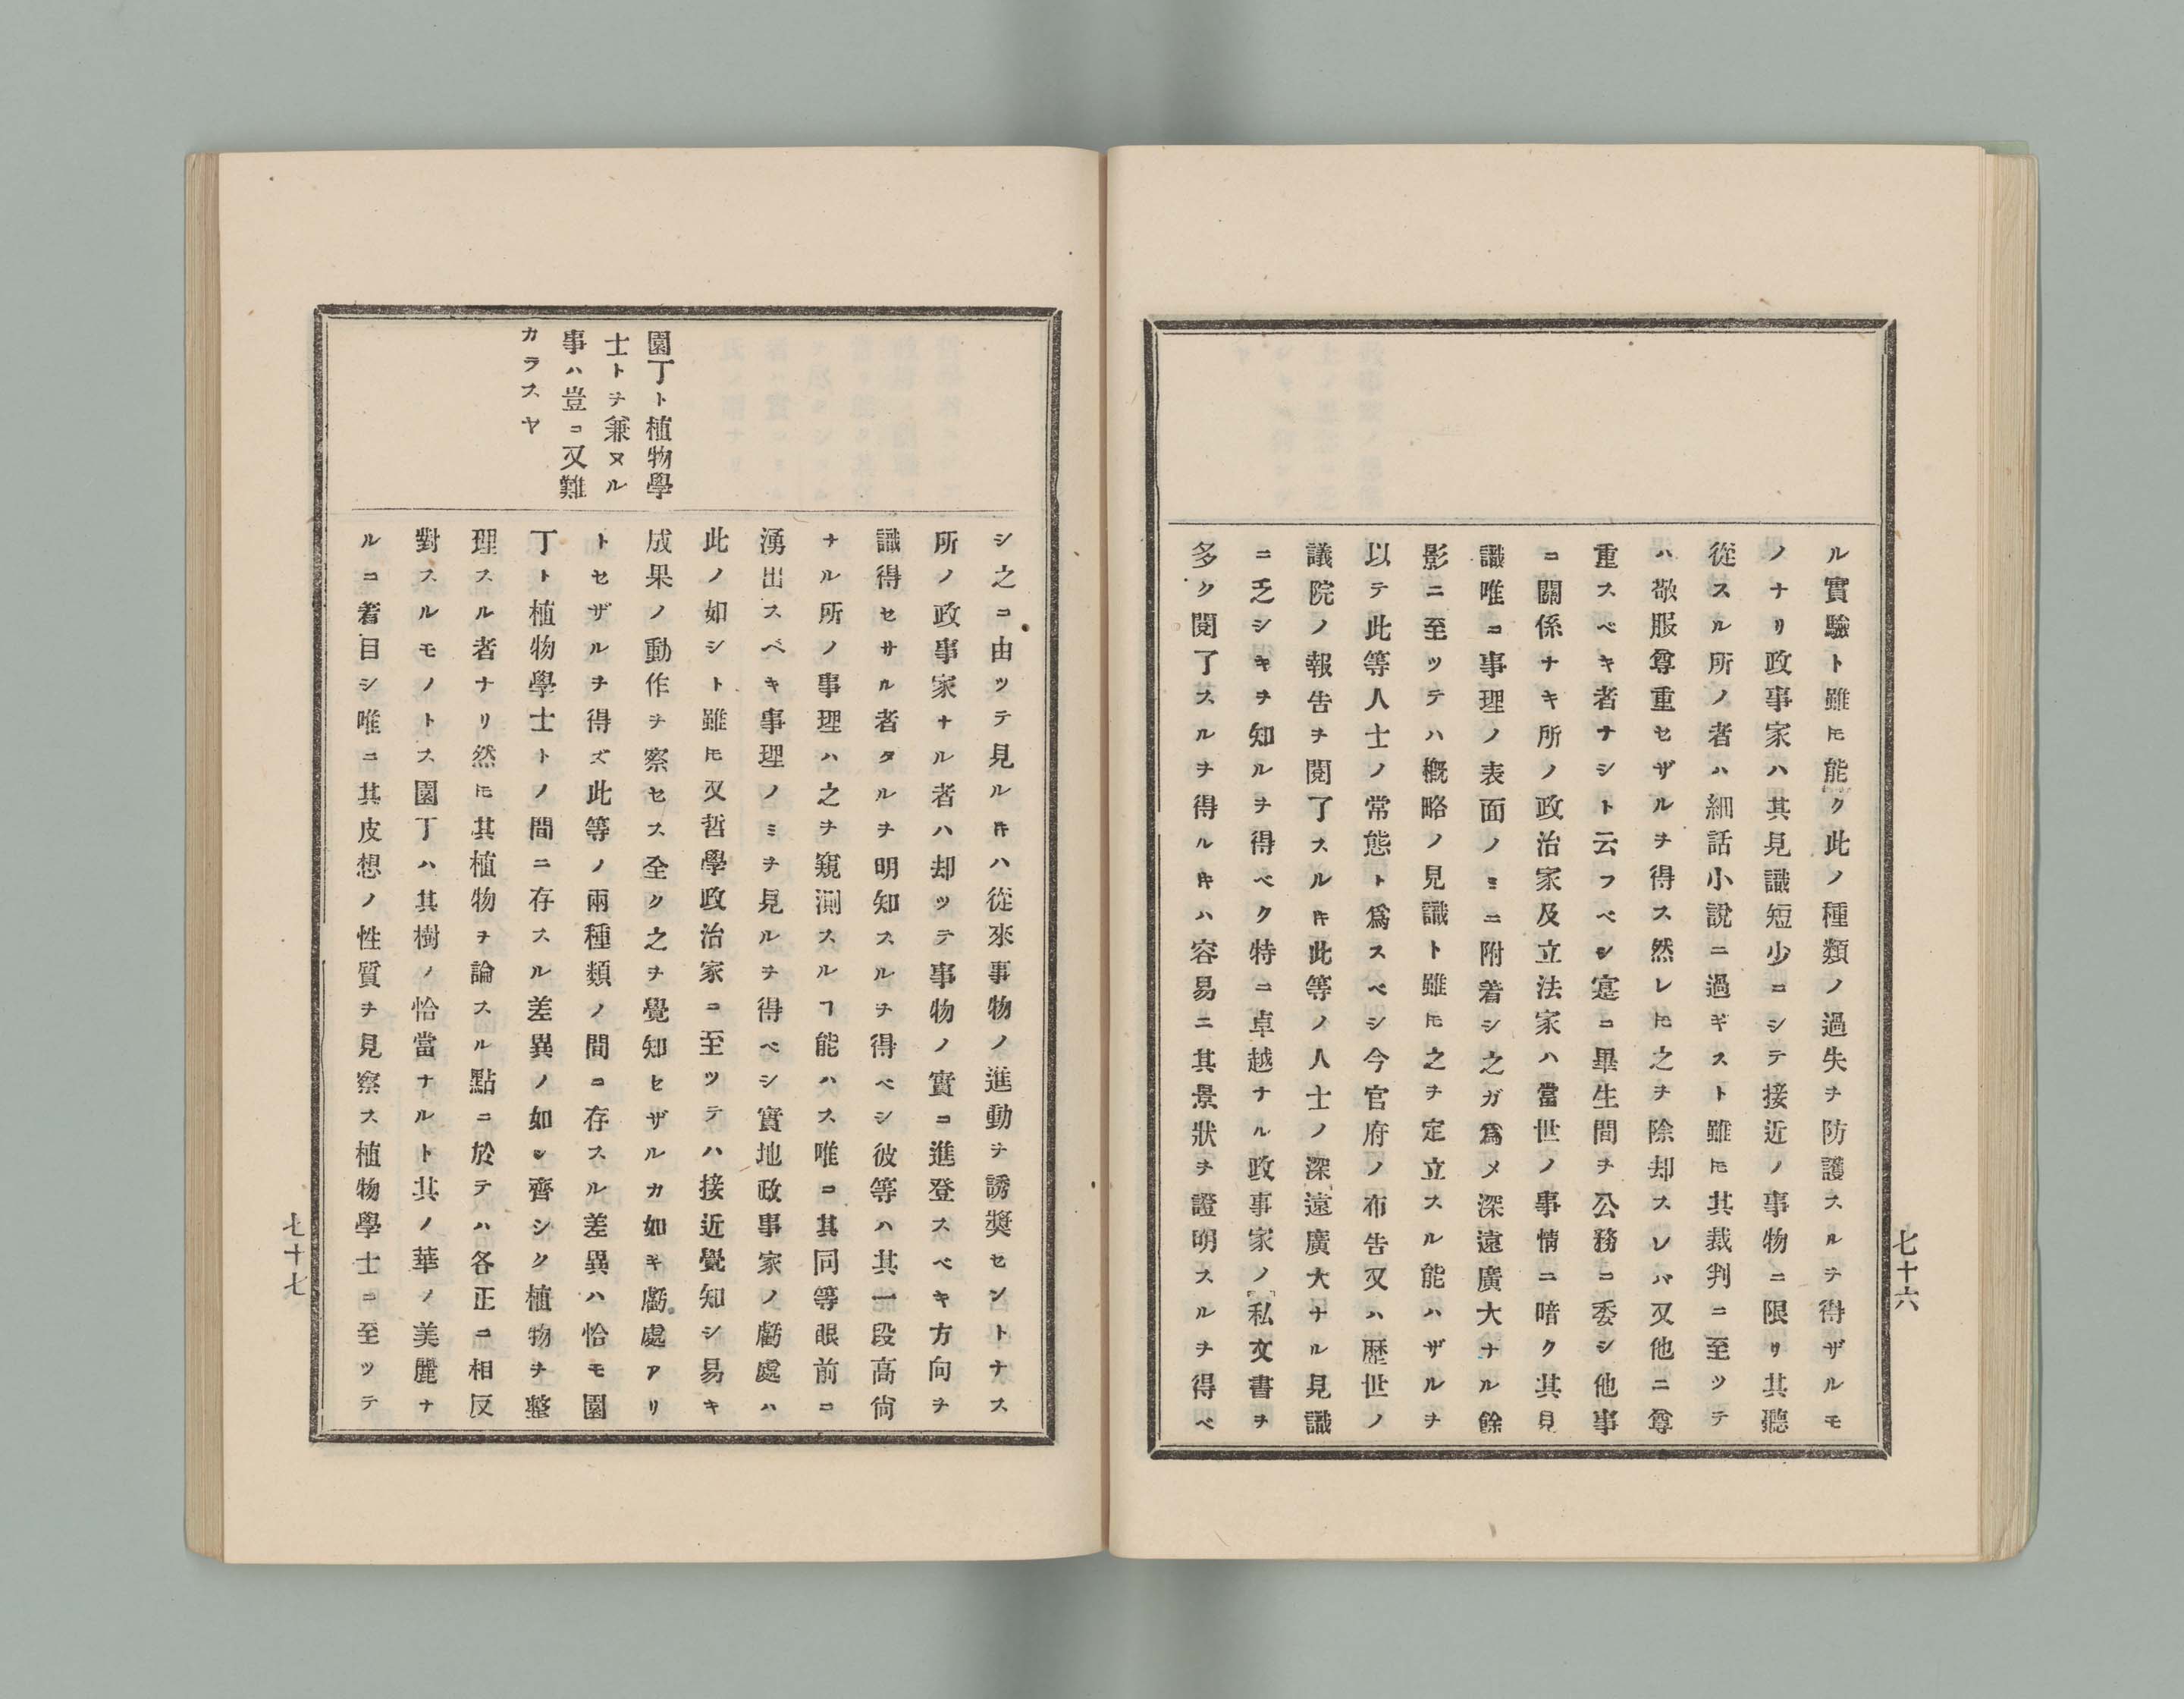 ル實驗ト雖𪜈能ク此ノ種類ノ過失ヲ防護スルヲ得ザルモ
ノナリ政事家ハ其見識短少ニシテ接近ノ事物ニ限リ其聽
從スル所ノ者ハ細話小說ニ過ギスト雖𪜈其裁判ニ至ツテ
ハ敬服尊重セザルヲ得ス然レ𪜈之ヲ除却スレバ又他ニ尊
重スベキ者ナシト云フベシ寔ニ畢生間ヲ公務ニ委シ他事
ニ關係ナキ所ノ政治家及立法家ハ當世ノ事情ニ暗ク其見
識唯ニ事理ノ表面ノミニ附着シ之ガ爲メ深遠廣大ナル餘
影ニ至ツテハ槪略ノ見識ト雖𪜈之ヲ定立スル能ハザルヲ
以テ此等人士ノ常態ト爲スベシ今官府ノ布告又ハ歷世ノ
議院ノ報告ヲ閱了スルキ此等ノ人士ノ深遠廣大ナル見識
ニ乏シキヲ知ルヲ得ベク特ニ卓越ナル政事家ノ私文書ヲ
多ク閱了スルヲ得ルキハ容易ニ其景狀ヲ證明スルヲ得ベ
七十六
園丁ト植物學
士トヲ兼ヌル
事ハ豈ニ又難
カラスヤ
シ之ニ由ツテ見ルキハ從來事物ノ進動ヲ誘奬セントナス
所ノ政事家ナル者ハ却ツテ事物ノ實ニ進登スベキ方向ヲ
識得セサル者タルヲ明知スルヲ得ベシ彼等ハ其一段高尙
ナル所ノ事理ハ之ヲ窺測スルヿ能ハス唯ニ其同等眼前ニ
湧出スベキ事理ノミヲ見ルヲ得ベシ實地政事家ノ虧處ハ
此ノ如シト雖𪜈又哲學政治家ニ至ツテハ接近覺知シ易キ
成果ノ動作ヲ察セス全ク之ヲ覺知セザルカ如キ虧處アリ
トセザルヲ得ズ此等ノ兩種類ノ間ニ存スル差異ハ恰モ園
丁ト植物學士トノ間ニ存スル差異ノ如シ齊シク植物ヲ整
理スル者ナリ然𪜈其植物ヲ論スル點ニ於テハ各正ニ相反
對スルモノトス園丁ハ其樹ノ恰當ナルト其ノ華ノ美麗ナ
ルニ着目シ唯ニ其皮想ノ性質ヲ見察ス植物學士ニ至ツテ
七十七